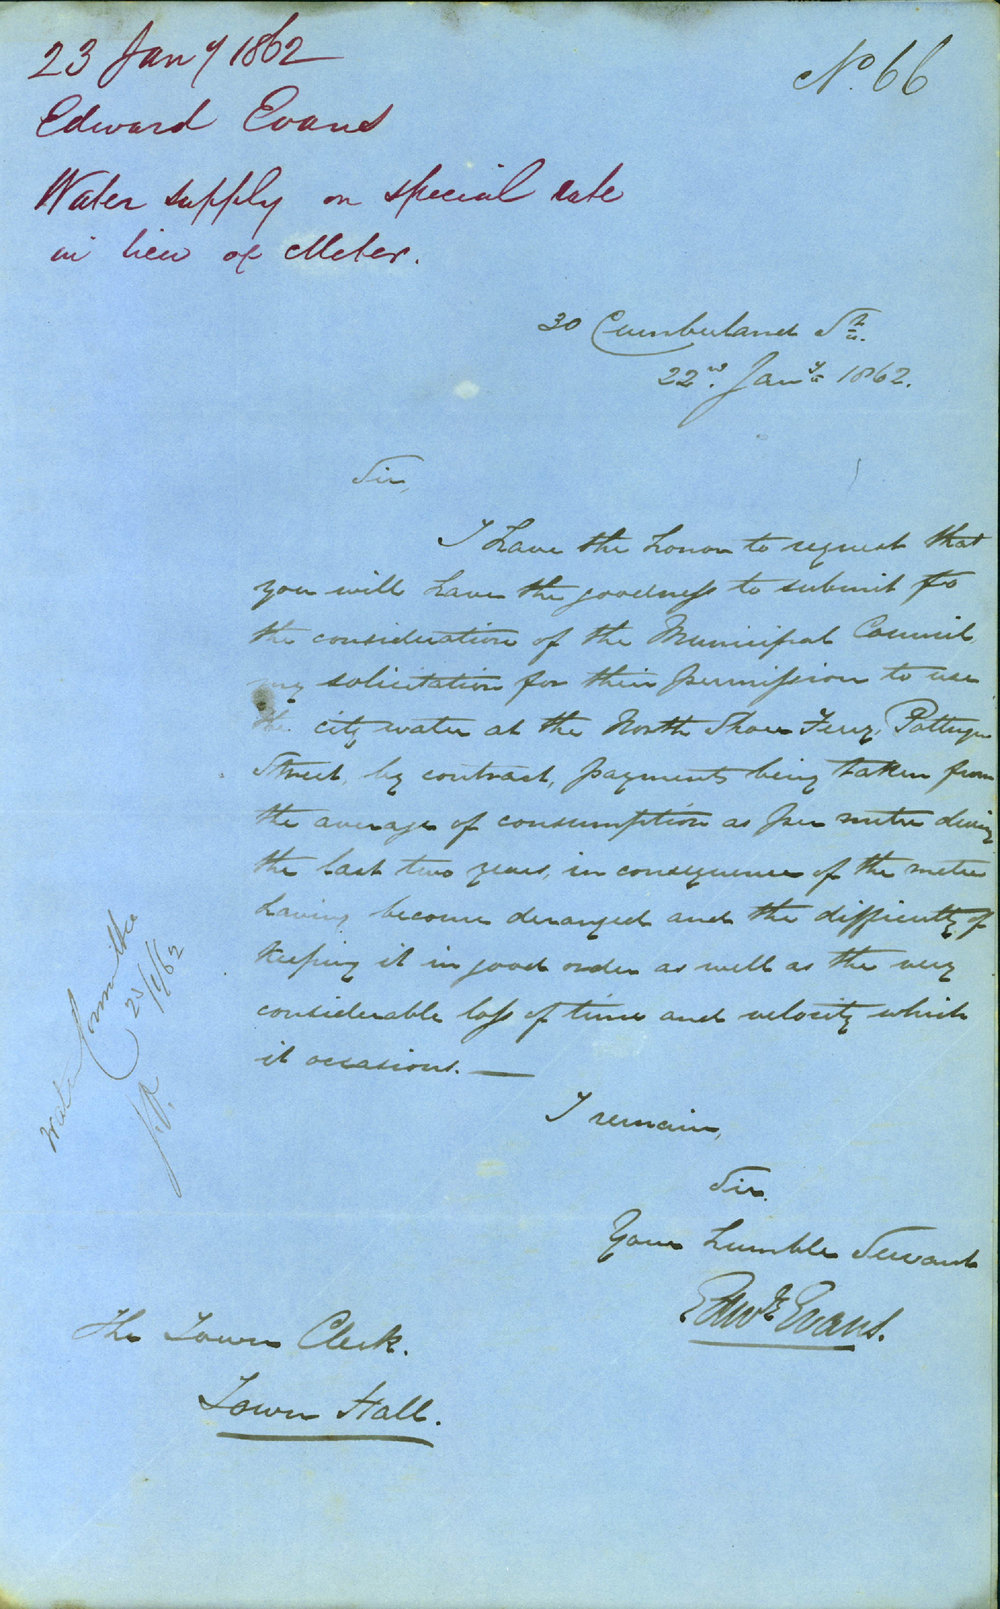 23 Jany 1862
No. 66
Edward Evans
Water supply on special rate
in lieu of Meter.
30 Cumberland St.
22nd. Jany. 1862.
Sir,
I have the honor to request that
you will have the goodness to submit to
the consideration of the Municipal Council
my solicitation for their permission to use
the city water at the North Shore Ferry,
Street, by contract, payments being taken from
the average of consumption as per metre during
the last two years, in consequence of the metre
having become deranged and the difficulty of
keeping it in good order as well as the very
considerable loss of time and velocity which
it occasions.—
I remain,
Sir.
Your humble Servant
Edwd. Evans.
The Town Clerk.
Town Hall.
Water Committee
23/1/62